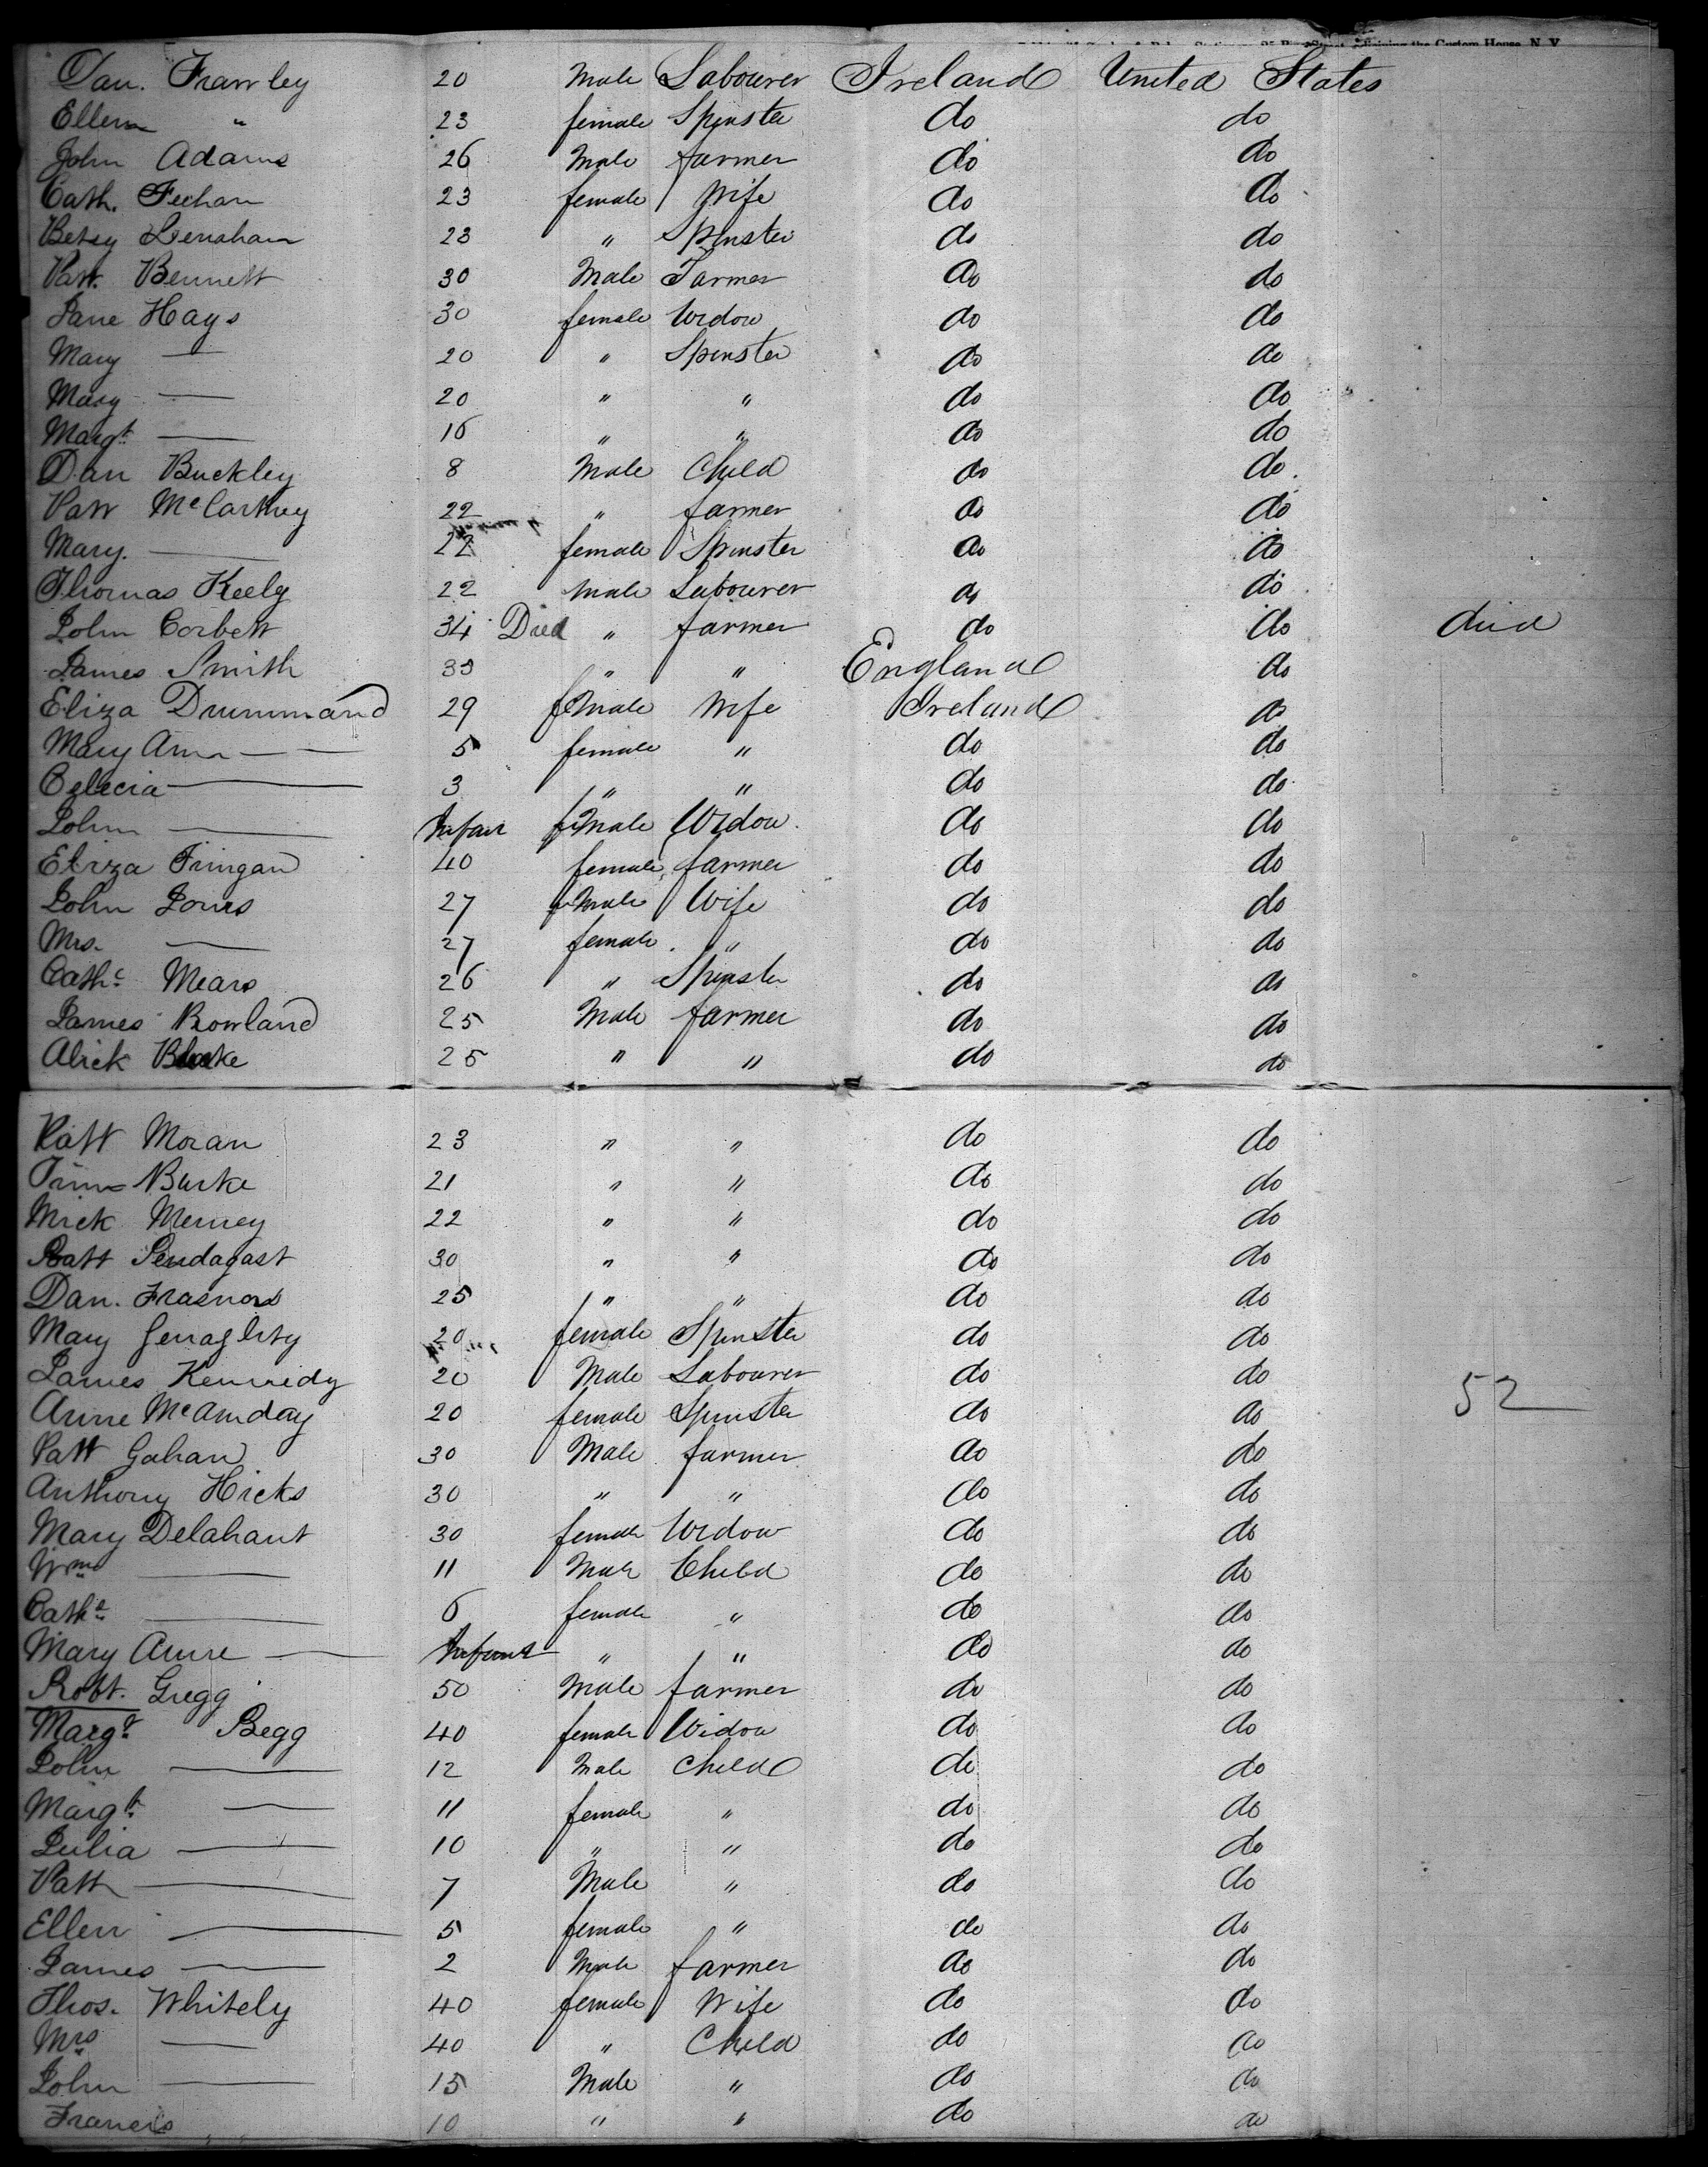 Dan. Frawley 20 Male Labourer Ireland United States
Ellen " 23 female Spinster do do
John Adams 26 Male farmer do do
Cath. Feehan 23 female Wife do do
Betsy Lenahan 23 " Spinster do do
Patt. Bennett 30 Male Farmer do do
Jane Hays 30 female Widow do do
Mary — 20 " Spinster do do
Mary — 20 " " do do
Margt — 16 " " do do
Dan Buckley 8 Male Child do do
Patt McCarthey 22 " farmer do do
Mary. — 22 female Spinster do do
Thomas Keely 22 male Labourer do do
John Corbett 34 Died " farmer do do died
James Smith 33 " " England do
Eliza Drummand 29 female Wife Ireland do
Mary Ann — 5 female " do do
Celicia — 3 " " do do
John — Infant Male Widow do do
Eliza Fingan 40 female farmer do do
John Jones 27 Male Wife do do
Mrs. — 27 female " do do
Cathe Mears 26 " Spinster do do
James Rowland 25 Male farmer do do
Alick Burke 25 " " do do
Patt Moran 23 " " do do
Tim Burke 21 " " do do
Mick Merney 22 " " do do
Patt Pendagast 30 " " do do
Dan. 25 " " do do
Mary Geraghty 20 female Spinster do do
James Kennedy 20 Male Labourer do do
Anne McAnday 20 female Spinster do do 52
Patt Gahan 30 Male farmer do do
Anthony Hicks 30 " " do do
Mary Delahant 30 female Widow do do
Wm — 11 Male Child do do
Cathe — 6 female " do do
Mary Anne — Infant " " do do
Robt. Gregg 50 Male farmer do do
Margt Begg 40 female Widow do do
John — 12 Male Child do do
Margt — 11 female " do do
Julia — 10 " " do do
Patt — 7 Male " do do
Ellen — 5 female " do do
James — 2 Male farmer do do
Thos. Whitely 40 female Wife do do
Mrs — 40 " Child do do
John — 15 Male " do do
Francis 10 " " do do